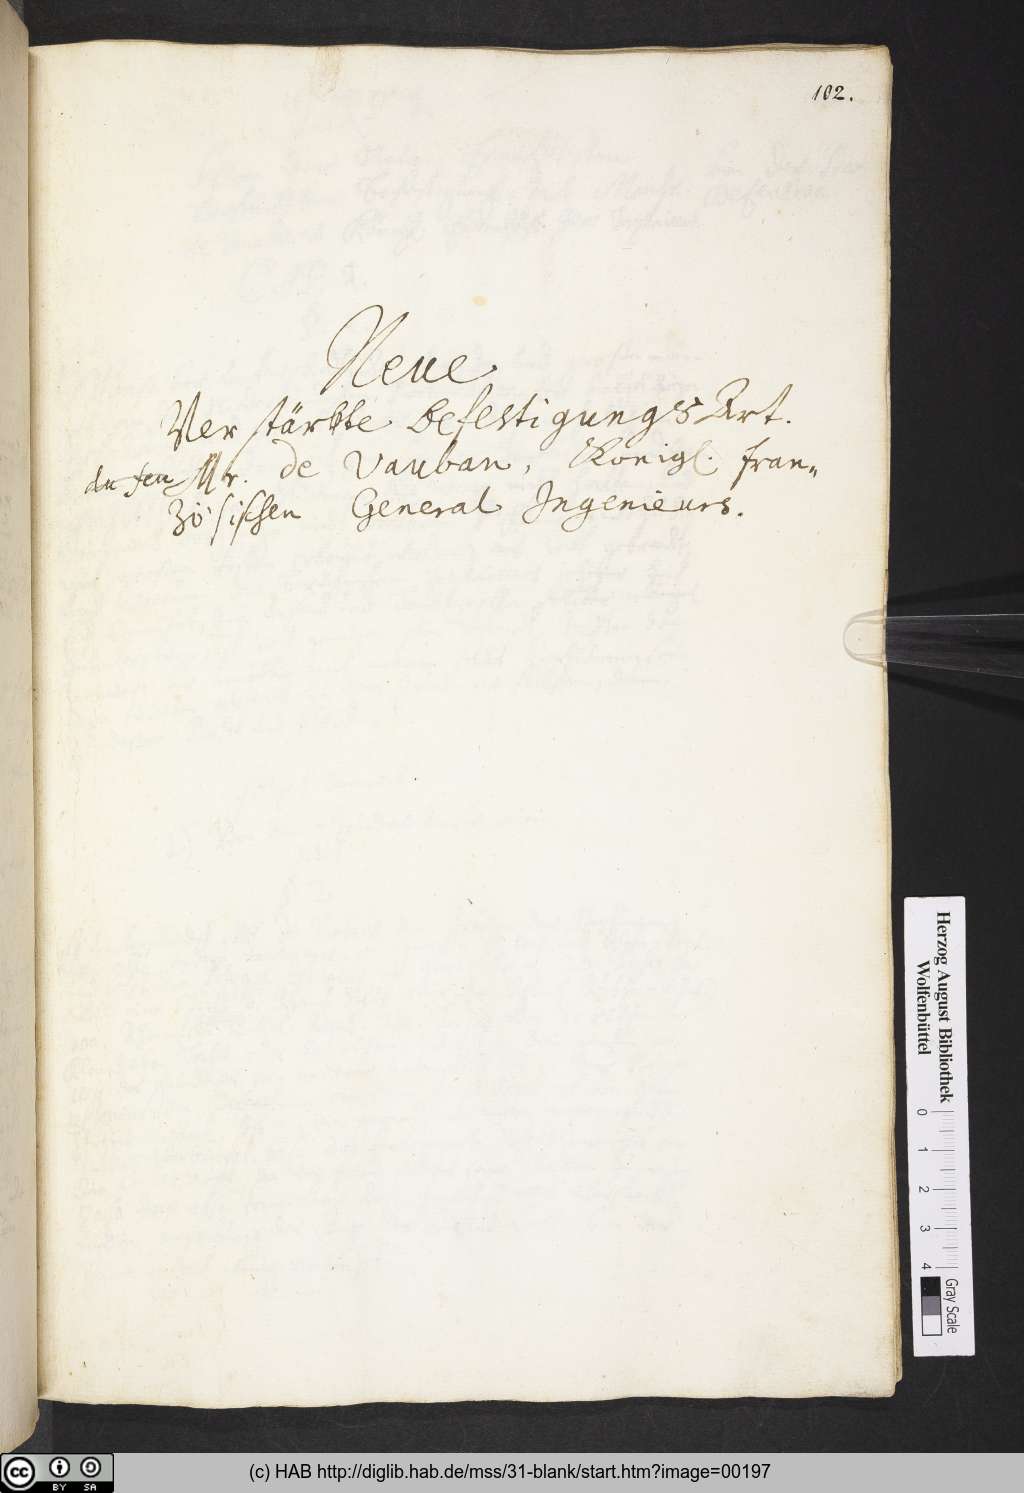 102.
Neue
Verstärkte befestigungs Art.
Mr. de Vauban, Königl. fran„
zösischen General Ingenieurs.
Herzog August Bibliothek
Wolfenbüttel
0 1 2 3 4
Gray Scale
cc BY SA
(c) HAB http://diglib.hab.de/mss/31-blank/start.htm?image=00197